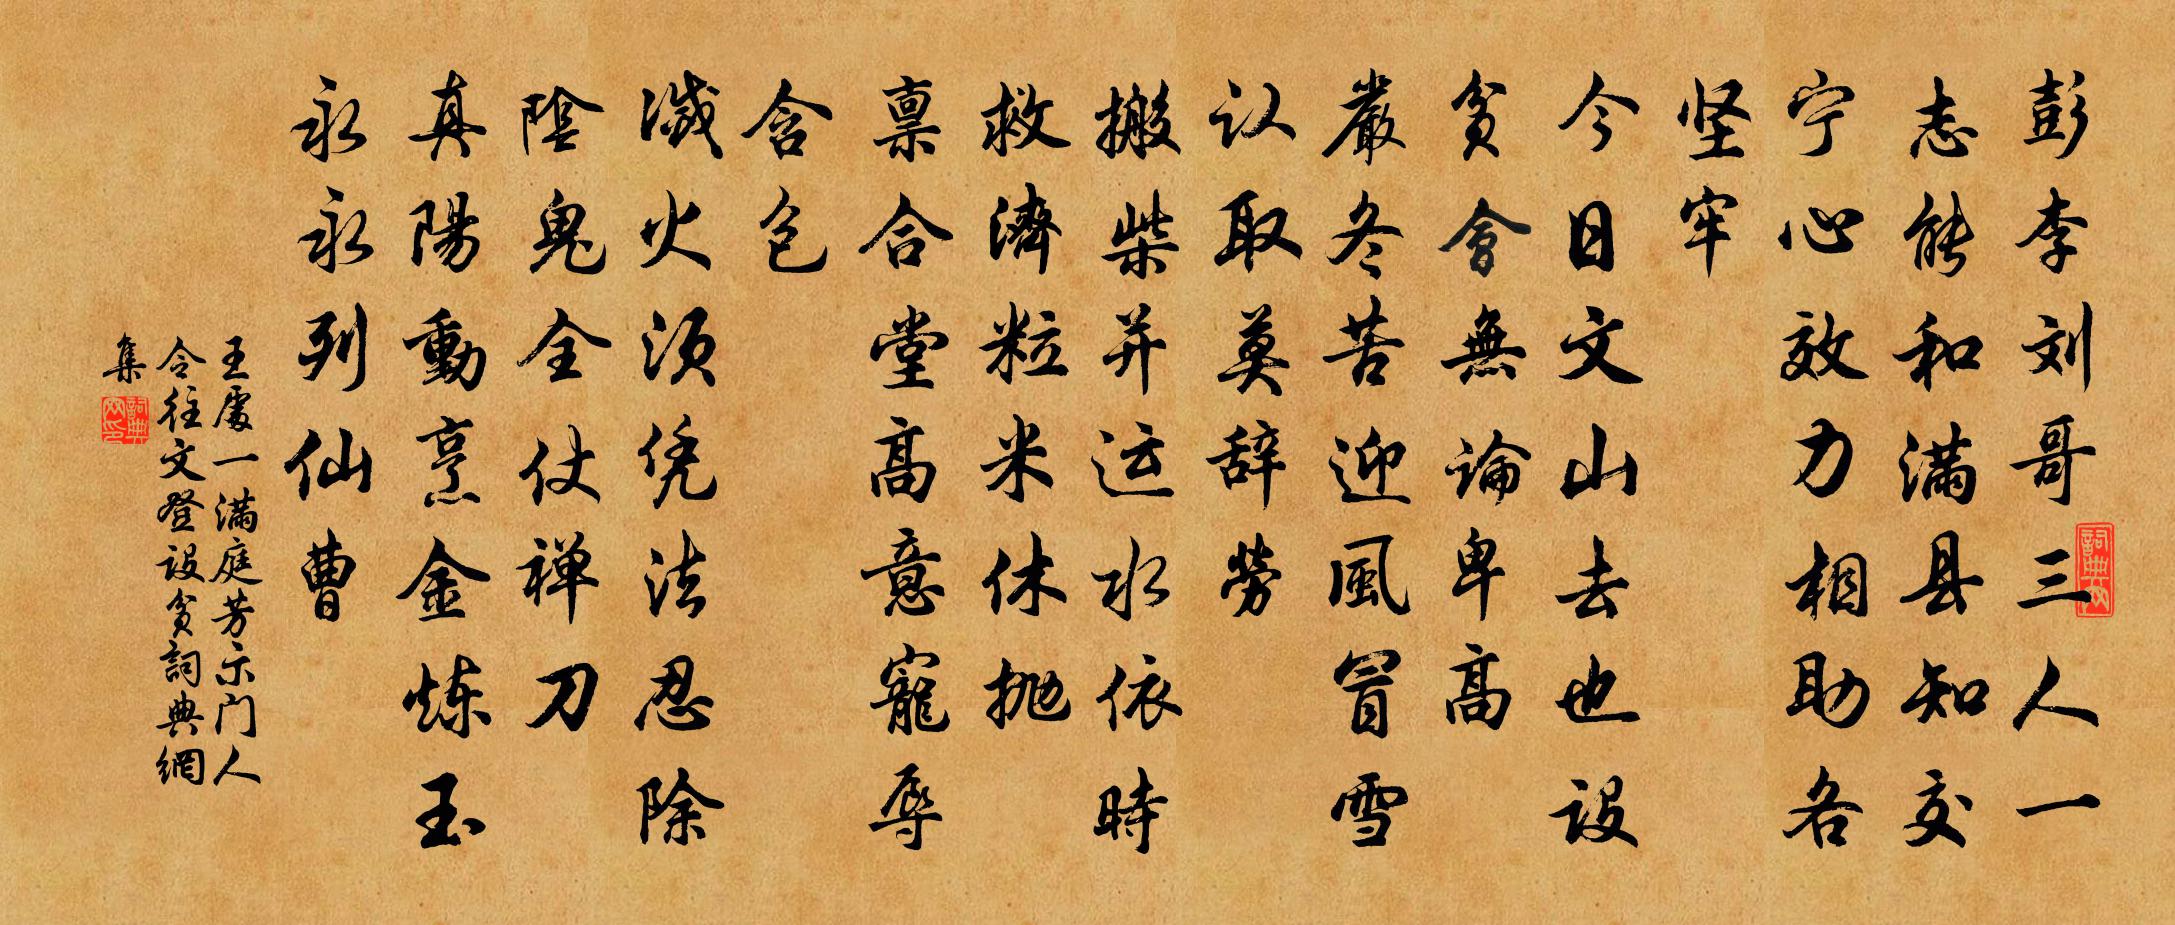 彭李刘哥三人一
志能和满县知交
宁心效力相助各
坚牢
今日文山去也设
贫會無論卑高
嚴冬苦迎風冒雪
认取莫辞勞
搬柴并运水依時
救濟粒米休抛
禀合堂高意寵辱
含包
滅火须凭法忍除
陰鬼全仗禅刀
真陽動烹金炼玉
永永列仙曹
王處一满庭芳示门人
令往文登设贫詞典網
集
詞典網
詞典網印